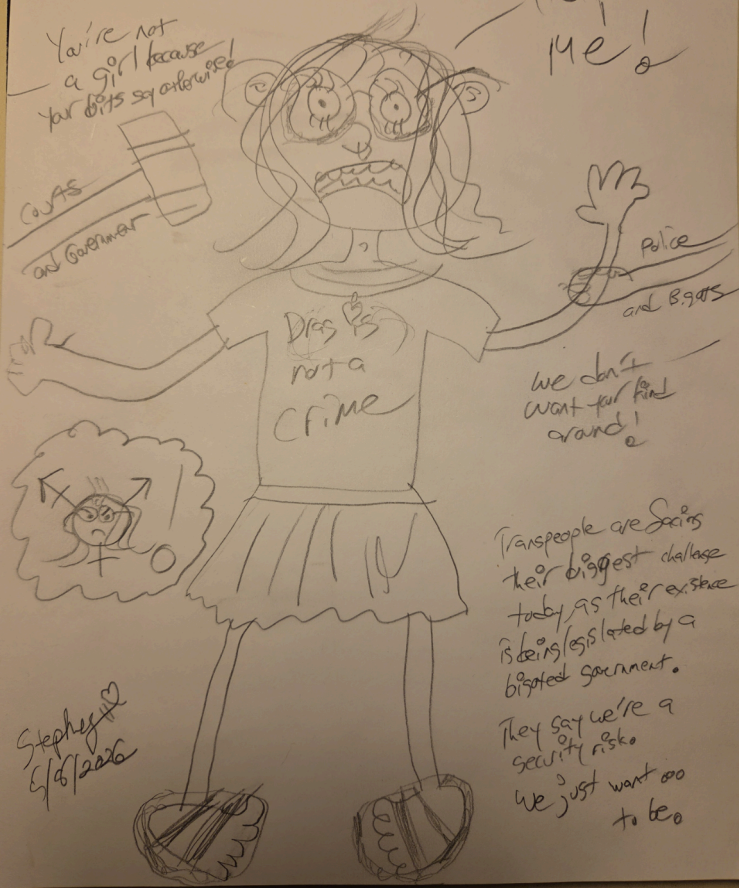 You're not
a girl because
your bits say otherwise!
me!
Courts
and
Police
and Bigots
Drag is
not a
Crime
we don't
want your kind
around!
Transpeople are facing
their biggest challenge
today, as their existence
is being legislated by a
bigoted goverment.
They say we're a
security risk.
We just want ...
to be.
Stephey
5/8/2026